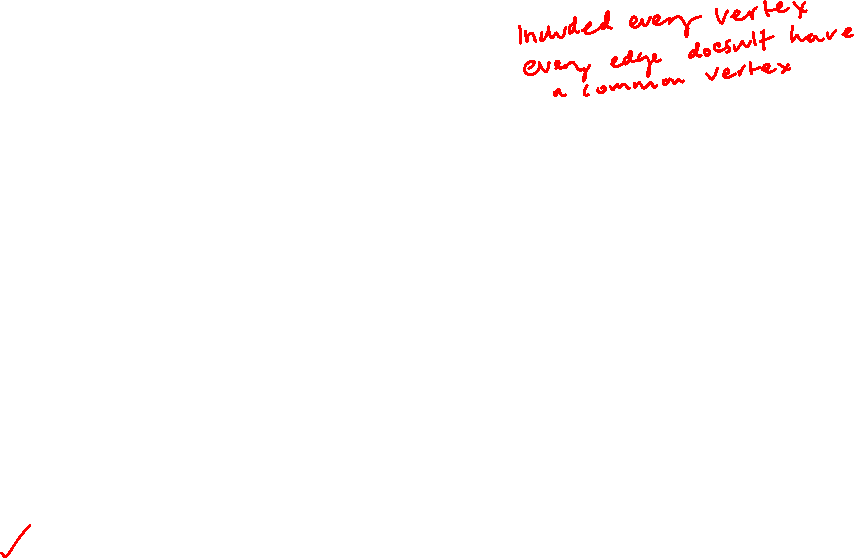 Included every vertex
every edge doesn't have
a common vertex